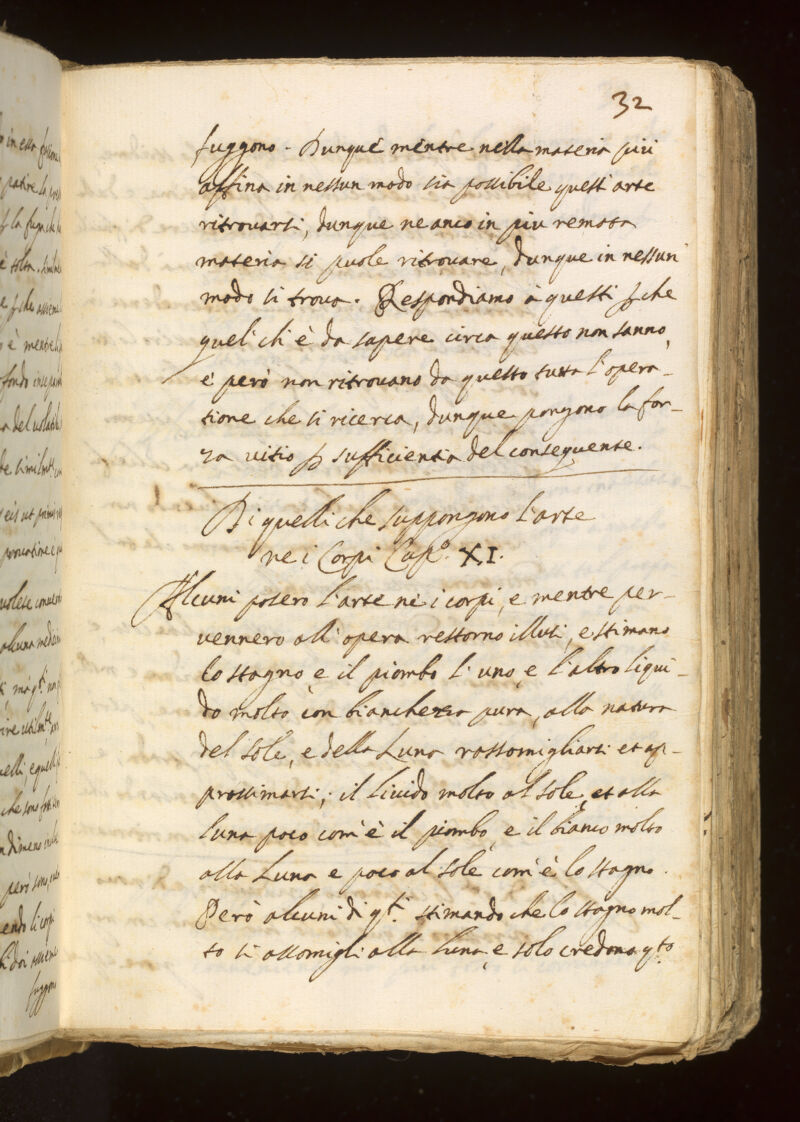 32
fuggono. Dunque mentre nella materia più
affina in nessun modo sia possibile quest'arte
ritrovarsi, dunque ne anco in più remota
materia si puole ritrovare, dunque in nessun
modo si trova. Respondiamo à questi p che
quel ch'è da sapere circa questo non sanno,
e però non ritrovano da questo tutta l'opera-
tione che si ricerca, dunque pongono la for-
za vitio p sufficientia del consequente.
Di quelli che suppongono l'arte
ne i Corpi Cap.º XI.
Alcuni posero l'arte ne i corpi, e mentre per-
vennero all'opera restorno illusi, e stimano
lo stagno e il piombo l'uno e l'altro liqui-
do molto con bianchezza pura, alla natura
del Sole, e della Luna rassomigliarsi et ap-
prossimarsi; il livido molto al sole, et alla
luna poco com'è il piombo, e il bianco molto
alla Luna e poco al sole com'è lo stagno.
Però alcuni di q.ti stimando che lo stagno mol-
to si assomigli alla Luna, e solo credono q.to
fuggono